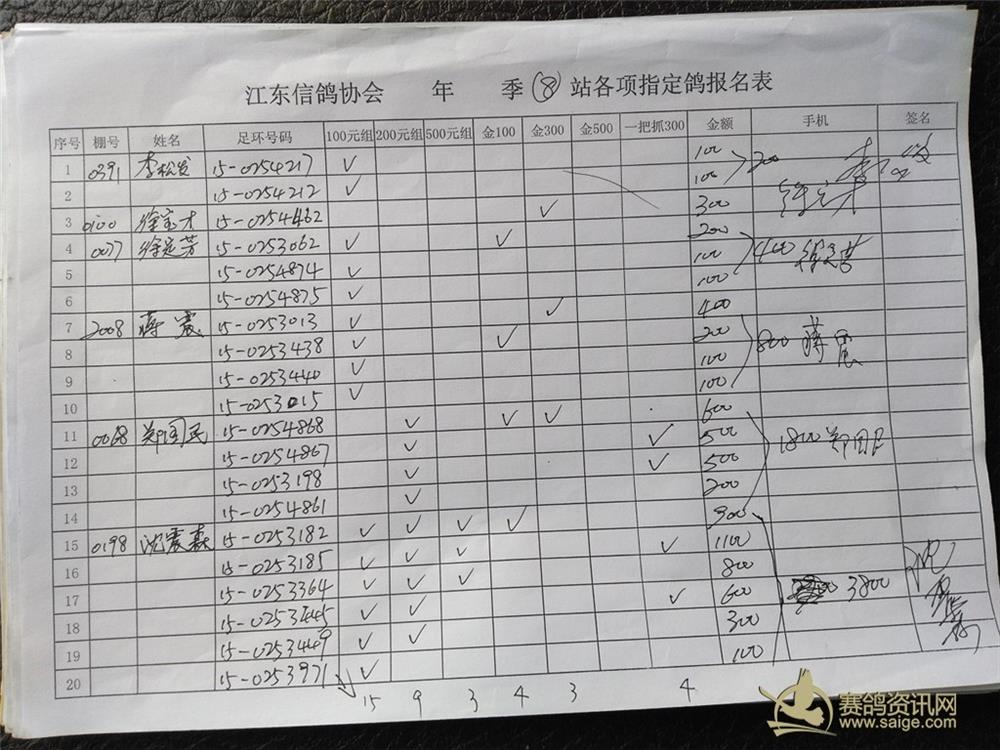 江东信鸽协会 年 季 ⑧ 站各项指定鸽报名表
序号 棚号 姓名 足环号码 100元组 200元组 500元组 金100 金300 金500 一把抓300 金额 手机 签名
1 0391 李松发 15-0254217 ✓ 100 200
2 15-0254212 ✓ 100
3 0100 徐宝才 15-0254462 ✓ 300
4 0077 徐定芳 15-0253062 ✓ ✓ 200 400
5 15-0254874 ✓ 100
6 15-0254875 ✓ 100
7 2008 蒋震 15-0253013 ✓ ✓ 400 800 蒋震
8 15-0253438 ✓ ✓ 200
9 15-0253440 ✓ 100
10 15-0253015 ✓ 100
11 0068 郑国民 15-0254868 ✓ ✓ ✓ 600 1800 郑国民
12 15-0254867 ✓ ✓ 500
13 15-0253198 ✓ ✓ 500
14 15-0254861 ✓ 200
15 0198 沈震森 15-0253182 ✓ ✓ ✓ ✓ 900
16 15-0253185 ✓ ✓ ✓ ✓ 1100
17 15-0253364 ✓ ✓ ✓ 800 3800
18 15-0253445 ✓ ✓ ✓ 600
19 15-0253449 ✓ ✓ 300
20 15-0253971 ✓ 100
15 9 3 4 3 4
赛鸽资讯网
www.saige.com